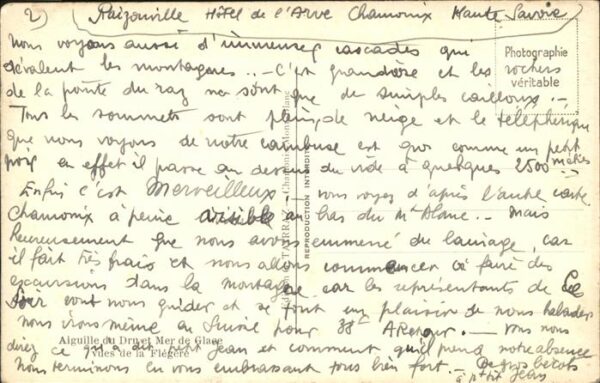 2) (Raizonville Hôtel de l'Arve Chamonix Haute Savoie)
Photographie
véritable
Nous voyons aussi d'immenses cascades qui
dévalent les montagnes.. - C'est grandiose et les rochers
de la pointe du raz ne sont que de simples cailloux. -
Tous les sommets sont pleins de neige et le téléphérique
que nous voyons de notre cambuse est gros comme un petit
pois en effet il passe au dessus du vide à quelques 2500 mètres
Enfin c'est Merveilleux. vous voyez d'après l'autre carte
Chamonix à peine visible au bas du Mt Blanc.. Mais
heureusement que nous avons emmené du lainage, car
il fait très frais et nous allons commencer à faire des
excursions dans la montagne car les représentants de
vont nous guider et se font un plaisir de nous balader
nous irons même en Suisse pour . - Vous nous
direz ce qu'a dit petit Jean et comment qu'il prend notre absence
Nous terminons en vous embrassant tous bien fort - De gros bécots
à ptit Jean
Aiguille du Dru et Mer de Glace
vues de la Flégère
REPRODUCTION INTERDITE